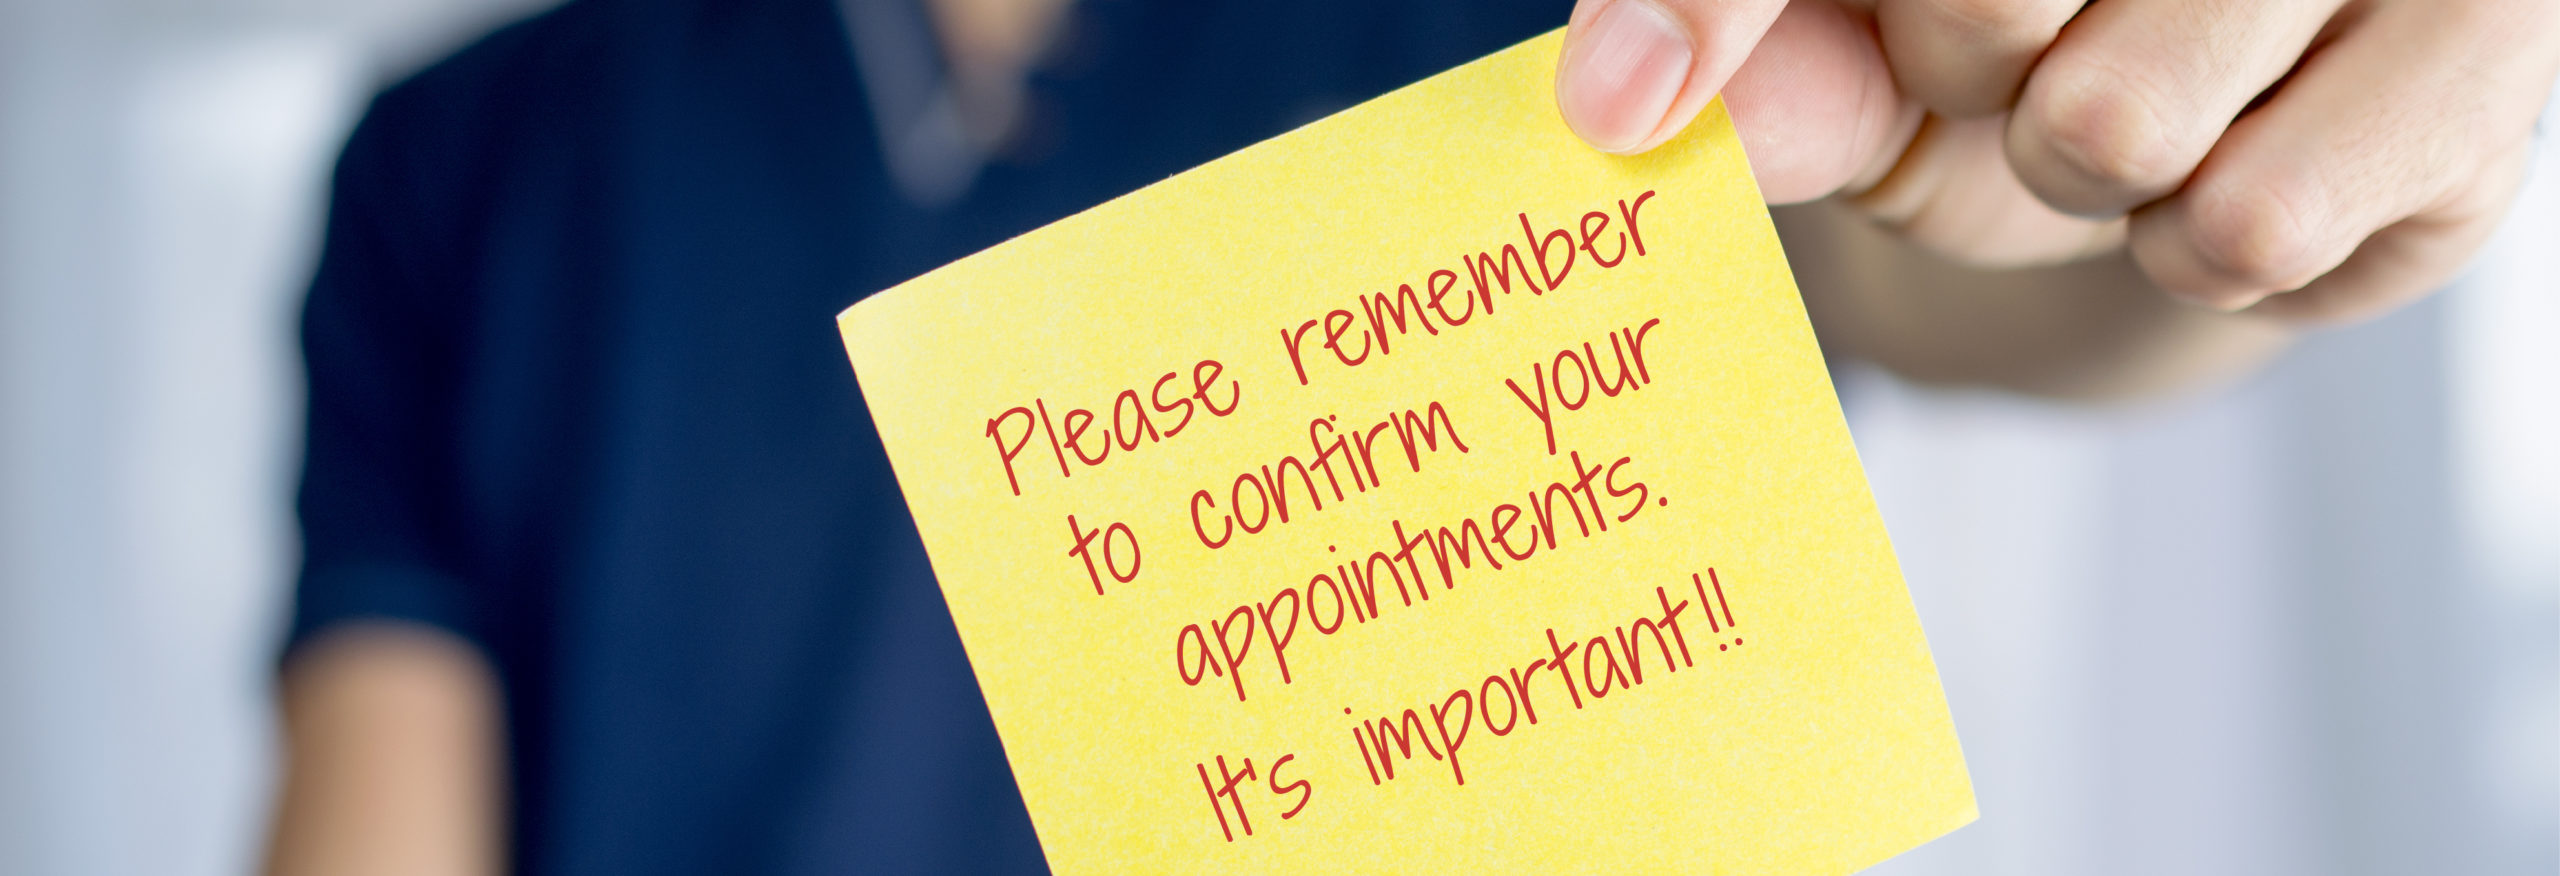 Please remember
to confirm your
appointments.
It's important!!